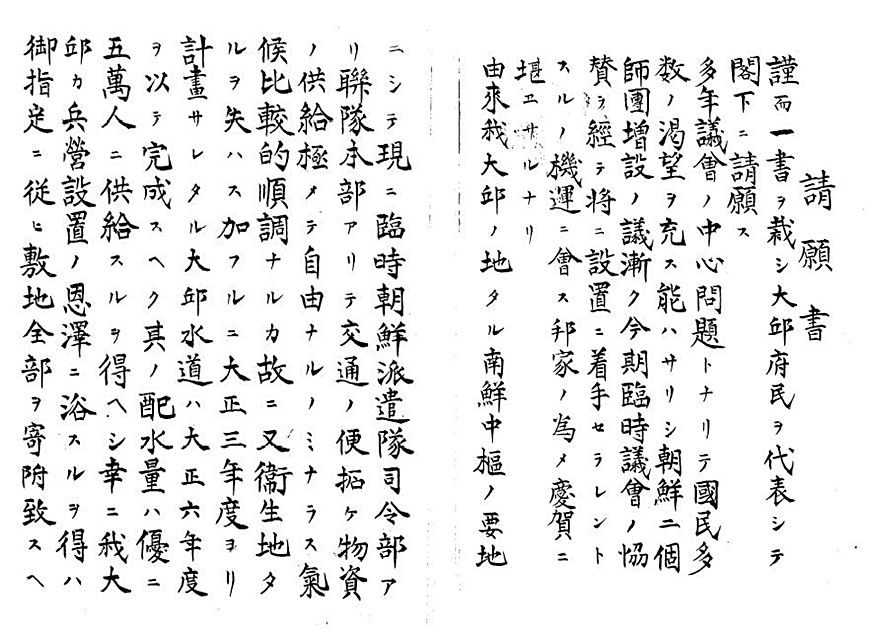 請願書
謹而一書ヲ裁シ大邱府民ヲ代表シテ
閣下ニ請願ス
多年議會ノ中心問題トナリテ國民多
数ノ渇望ヲ充ス能ハサリシ朝鮮二個
師團增設ノ議漸ク今期臨時議會ノ協
賛ヲ經テ將ニ設置ニ着手セラレント
スルノ機運ニ會ス邦家ノ為メ慶賀ニ
堪エサルナリ
由來我大邱ノ地タル南鮮中樞ノ要地
ニシテ現ニ臨時朝鮮派遣隊司令部ア
リ聯隊本部アリテ交通ノ便拓ケ物資
ノ供給極メテ自由ナルノミナラス氣
候比較的順調ナルカ故ニ又衞生地タ
ルヲ失ハス加フルニ大正三年度ヨリ
計畫サレタル大邱水道ハ大正六年度
ヲ以テ完成スヘク其ノ配水量ハ優ニ
五萬人ニ供給スルヲ得ヘシ幸ニ我大
邱カ兵營設置ノ恩澤ニ浴スルヲ得ハ
御指定ニ従ヒ敷地全部ヲ寄附致スヘ